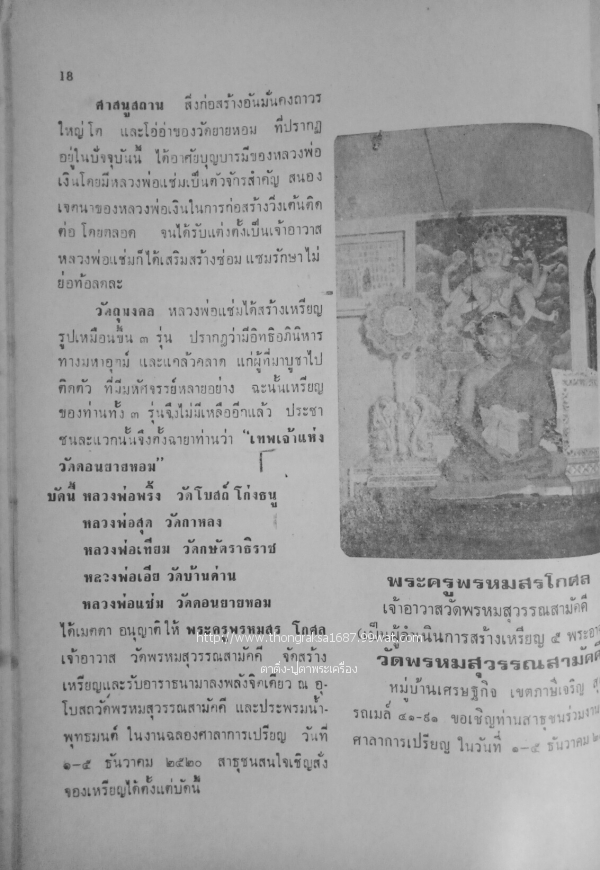 18
ศาสนูสถาน สิ่งก่อสร้างอันมั่นคงถาวร
ใหญ่โต และโอ่อ่าของวัดยายหอม ที่ปรากฏ
อยู่ในปัจจุบันนี้ ได้อาศัยบุญบารมีของหลวงพ่อ
เงินโดยมีหลวงพ่อแช่มเป็นตัวจักรสำคัญ สนอง
เจตนาของหลวงพ่อเงินในการก่อสร้างวิ่งเต้นติด
ต่อ โดยตลอด จนได้รับแต่งตั้งเป็นเจ้าอาวาส
หลวงพ่อแช่มก็ได้เสริมสร้างซ่อม แซมรักษา ไม่
ย่อท้อลดละ
วัตถุมงคล หลวงพ่อแช่มได้สร้างเหรียญ
รูปเหมือนขึ้น ๓ รุ่น ปรากฏว่ามีอิทธิอภินิหาร
ทางมหาอุฑม์ และแคล้วคลาด แก่ผู้ที่มาบูชาไป
ติดตัว ที่มีมหัศจรรย์หลายอย่าง ฉะนั้นเหรียญ
ของท่านทั้ง ๓ รุ่นจึงไม่มีเหลืออีกแล้ว ประชา
ชนละแวกนั้นจึงตั้งฉายาท่านว่า "เทพเจ้าแห่ง
วัดดอนยายหอม"
บัดนี้ หลวงพ่อพริ้ง วัดโบสถ์ โก่งธนู
หลวงพ่อสุด วัดกาหลง
หลวงพ่อเทียม วัดกษัตราธิราช
หลวงพ่อเอีย วัดบ้านด่าน
หลวงพ่อแช่ม วัดดอนยายหอม
ได้เมตตา อนุญาติให้ พระครูพรหมสร โกศล
เจ้าอาวาส วัดพรหมสุวรรณสามัคคี จัดสร้าง
เหรียญและรับอาราธนามาลงพลังจิตเดียว ณ อุ-
โบสถวัดพรหมสุวรรณสามัคคี และประพรมน้ำ-
พุทธมนต์ ในงานฉลองศาลาการเปรียญ วันที่
๑-๕ ธันวาคม ๒๕๒๐ สาธุชนสนใจเชิญสั่ง
จองเหรียญได้ตั้งแต่บัดนี้
พระครูพรหมสรโกศล
เจ้าอาวาสวัดพรหมสุวรรณสามัคคี
(เป็นผู้ดำเนินการสร้างเหรียญ ๕ พระอา
วัดพรหมสุวรรณสามัคคี
หมู่บ้านเศรษฐกิจ เขตภาษีเจริญ
รถเมล์ ๔๑-๙๑ ขอเชิญท่านสาธุชนร่วมงาน
ศาลาการเปรียญ ในวันที่ ๑-๕ ธันวาคม
http://www.thongraisa1687.99wat.com
ตาติ่ง-ปูดาพระเครื่อง